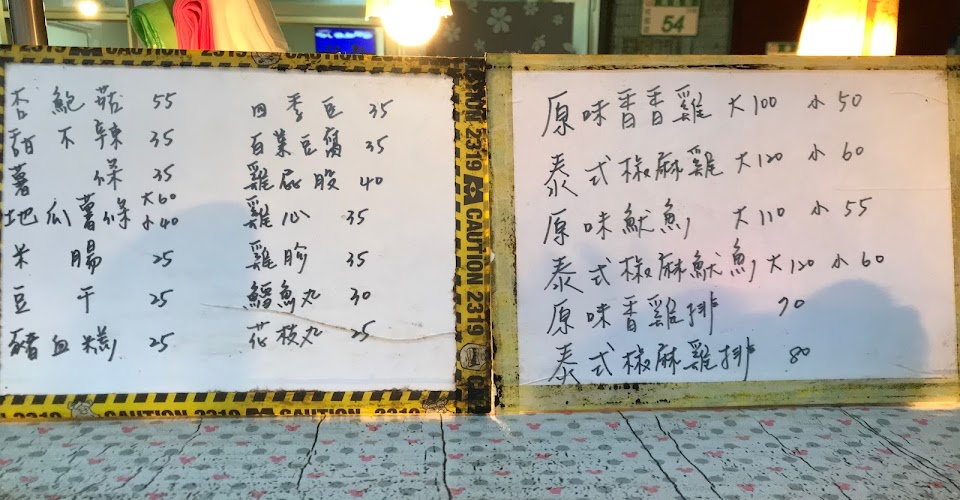 54
杏鮑菇 55
甜不辣 35
薯條 35
地瓜薯條 大60 小40
米腸 25
豆干 25
豬血糕 25
四季豆 35
百葉豆腐 35
雞屁股 40
雞心 35
雞胗 35
鱈魚丸 30
花枝丸 25
原味香香雞 大100 小50
泰式椒麻雞 大120 小60
原味魷魚 大110 小55
泰式椒麻魷魚 大120 小60
原味香雞排 70
泰式椒麻雞排 80
CAUTION 2319
CAUTION 2319
CAUTION 2319 CAUTION 2319